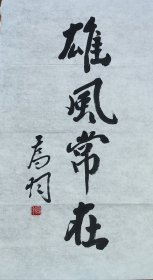 雄風常在